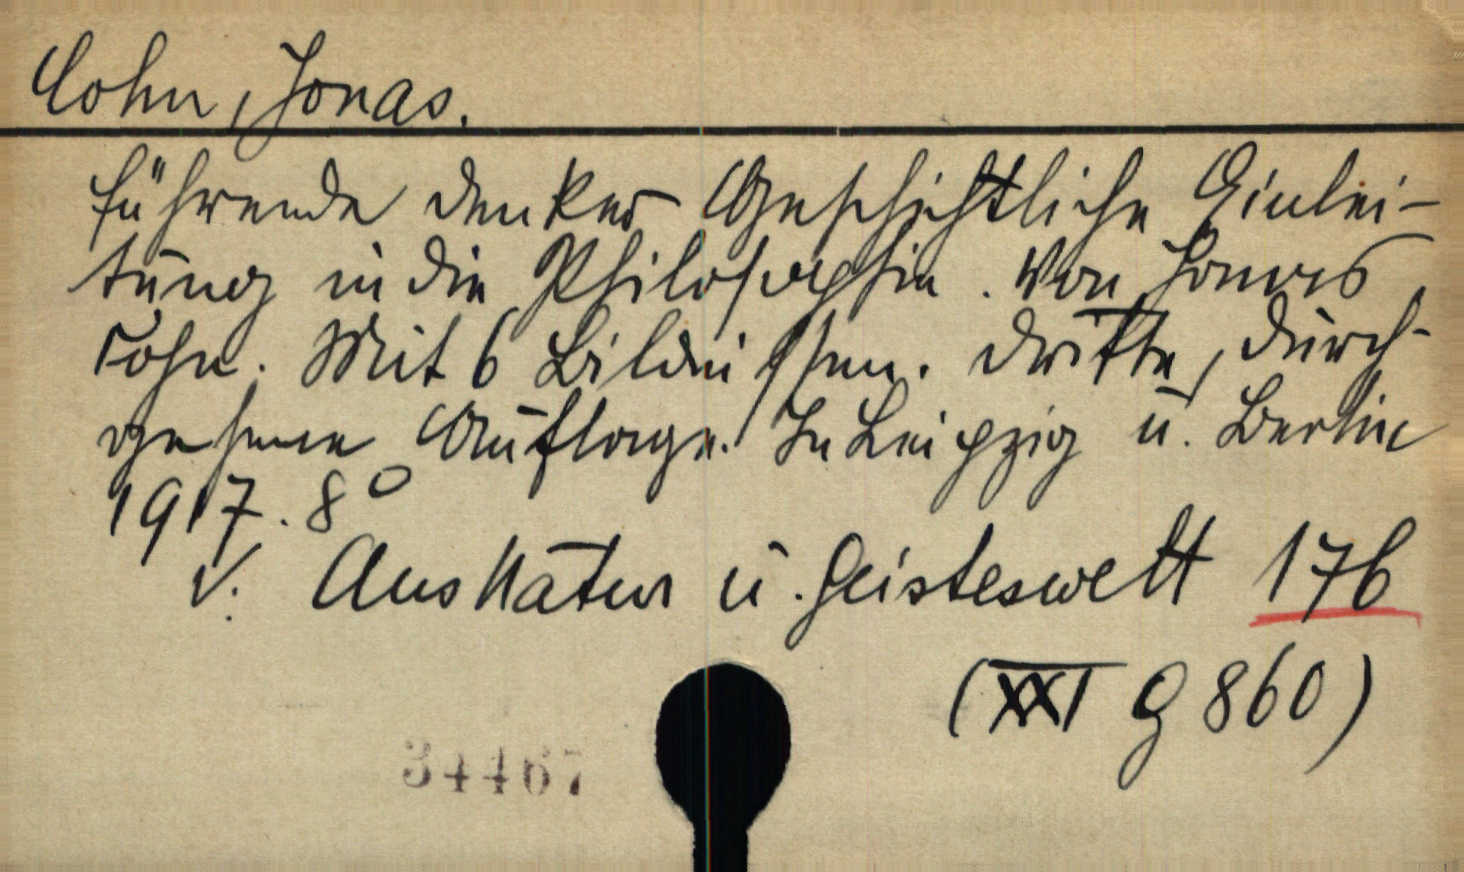 Cohn, Jonas.
Führende Denker Geschichtliche Einlei-
tung in die Philosophie. Von Jonas
Cohn. Mit 6 Bildnissen. Dritte, durch-
gesehene Auflage. In Leipzig u. Berlin
1917. 8°
V. Aus Natur u. Geisteswelt 176
(XXI G 860)
34467